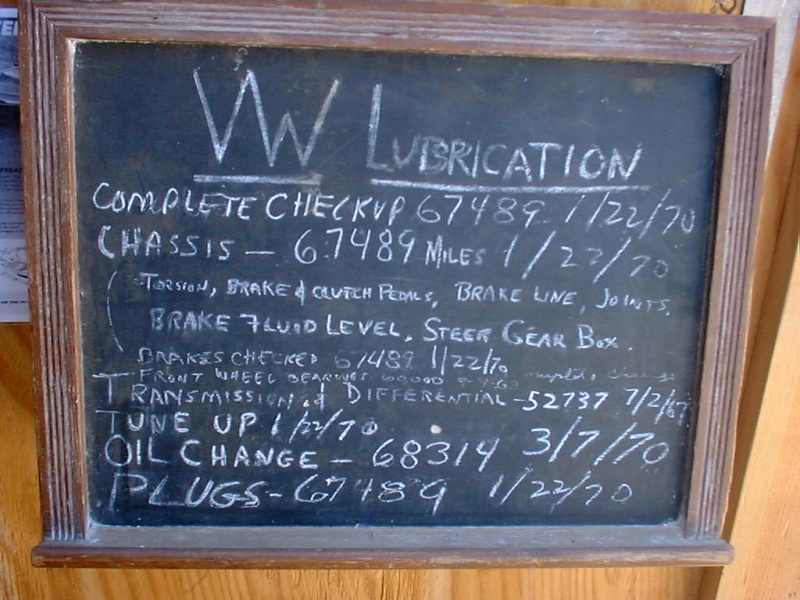 VW LUBRICATION
COMPLETE CHECKUP 67489 1/22/70
CHASSIS — 67489 MILES 1/22/70
(TORSION, BRAKE & CLUTCH PEDALS, BRAKE LINE, JOINTS,
BRAKE FLUID LEVEL, STEER GEAR BOX.
BRAKES CHECKED 67489 1/22/70
FRONT WHEEL BEARINGS 60,000
TRANSMISSION & DIFFERENTIAL - 52737 7/2/67
TUNE UP 1/22/70
OIL CHANGE — 68314 3/7/70
PLUGS - 67489 1/22/70